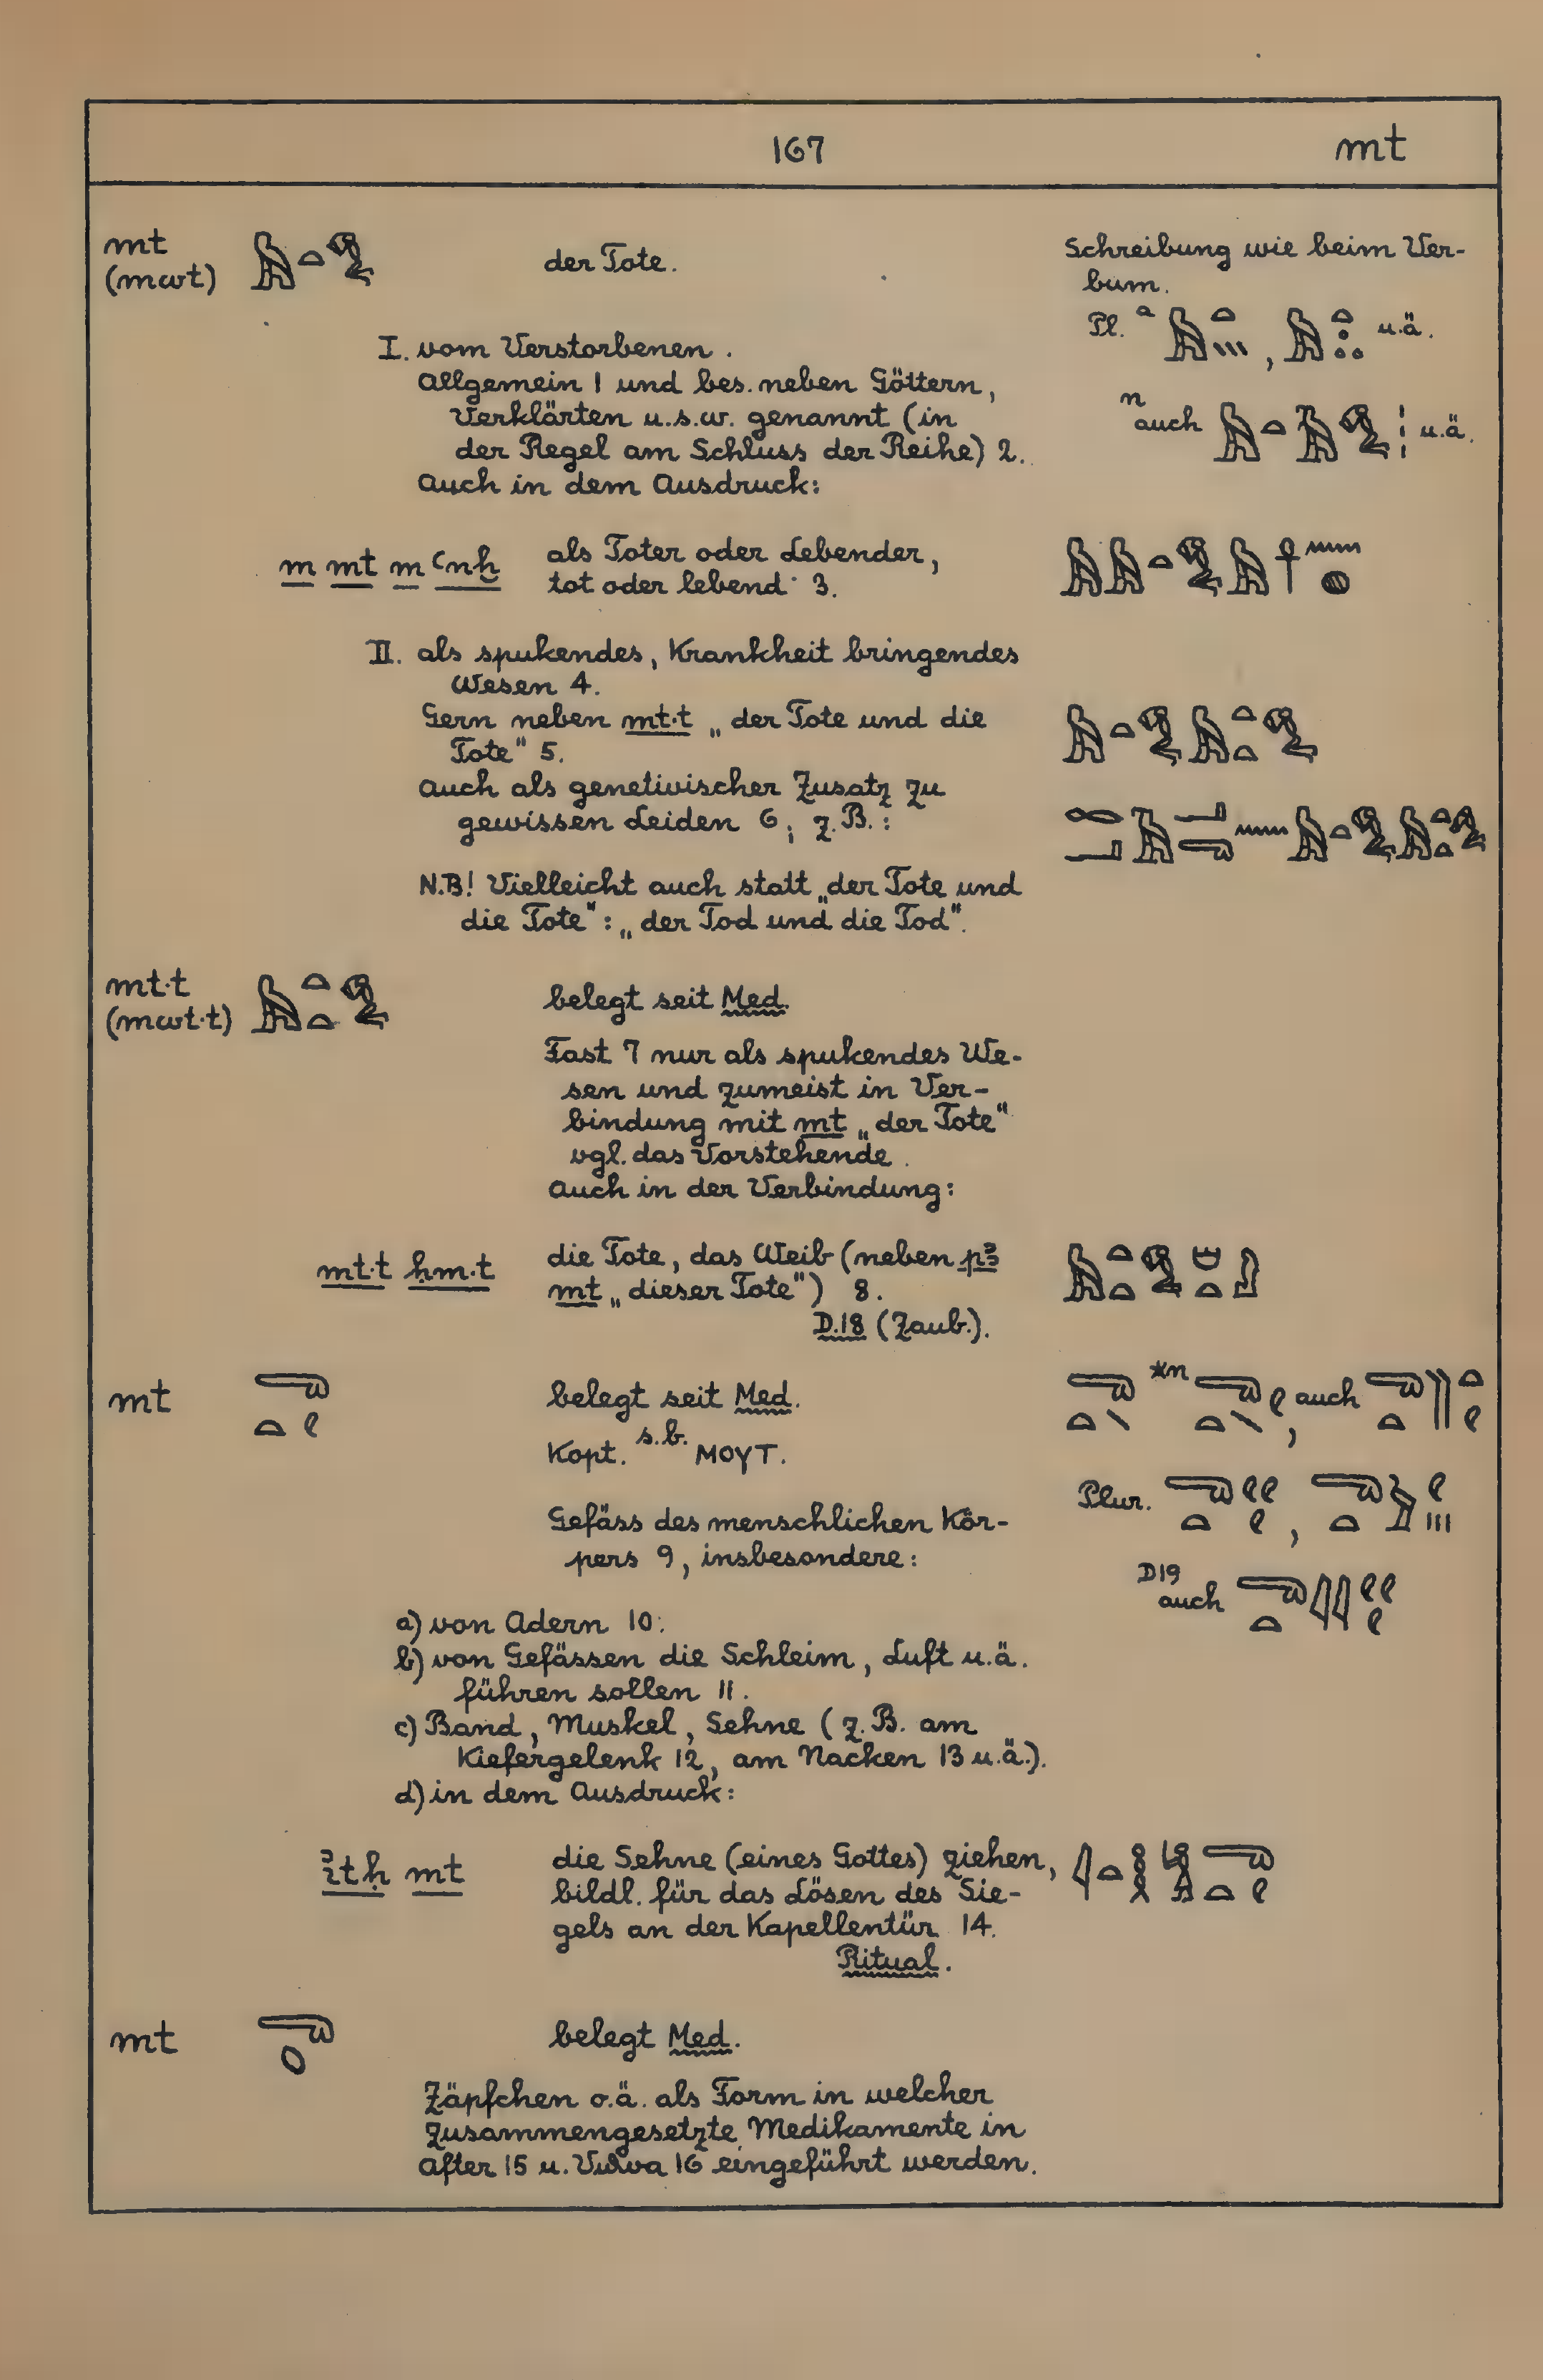 167
mt
mt
(mwt)
der Tote.
Schreibung wie beim Ver-
bum.
Pl. a , u.ä.
n auch u.ä.
I. vom Verstorbenen.
Allgemein 1 und bes. neben Göttern,
Verklärten u.s.w. genannt (in
der Regel am Schluss der Reihe) 2.
Auch in dem Ausdruck:
m mt m ꜥnḫ
als Toter oder Lebender,
tot oder lebend 3.
II. als spukendes, Krankheit bringendes
Wesen 4.
Gern neben mt·t „der Tote und die
Tote" 5.
Auch als genetivischer Zusatz zu
gewissen Leiden 6; z.B.:
N.B! Vielleicht auch statt „der Tote und
die Tote": „der Tod und die Tod".
mt·t
(mwt·t)
belegt seit Med.
Fast 7 nur als spukendes We-
sen und zumeist in Ver-
bindung mit mt „der Tote"
vgl. das Vorstehende.
Auch in der Verbindung:
mt·t ḥm·t
die Tote, das Weib (neben pꜣ
mt „dieser Tote") 8.
D.18 (Zaub.).
mt
belegt seit Med.
*n , auch
Kopt. s.b. ⲙⲟⲩⲧ.
Plur. ,
Gefäss des menschlichen Kör-
pers 9, insbesondere:
D19
auch
a) von Adern 10:
b) von Gefässen die Schleim, Luft u.ä.
führen sollen 11.
c) Band, Muskel, Sehne (z.B. am
Kiefergelenk 12, am Nacken 13 u.ä.).
d) in dem Ausdruck:
ꞽtḥ mt
die Sehne (eines Gottes) ziehen,
bildl. für das Lösen des Sie-
gels an der Kapellentür 14.
Ritual.
mt
belegt Med.
Zäpfchen o.ä. als Form in welcher
zusammengesetzte Medikamente in
After 15 u. Vulva 16 eingeführt werden.